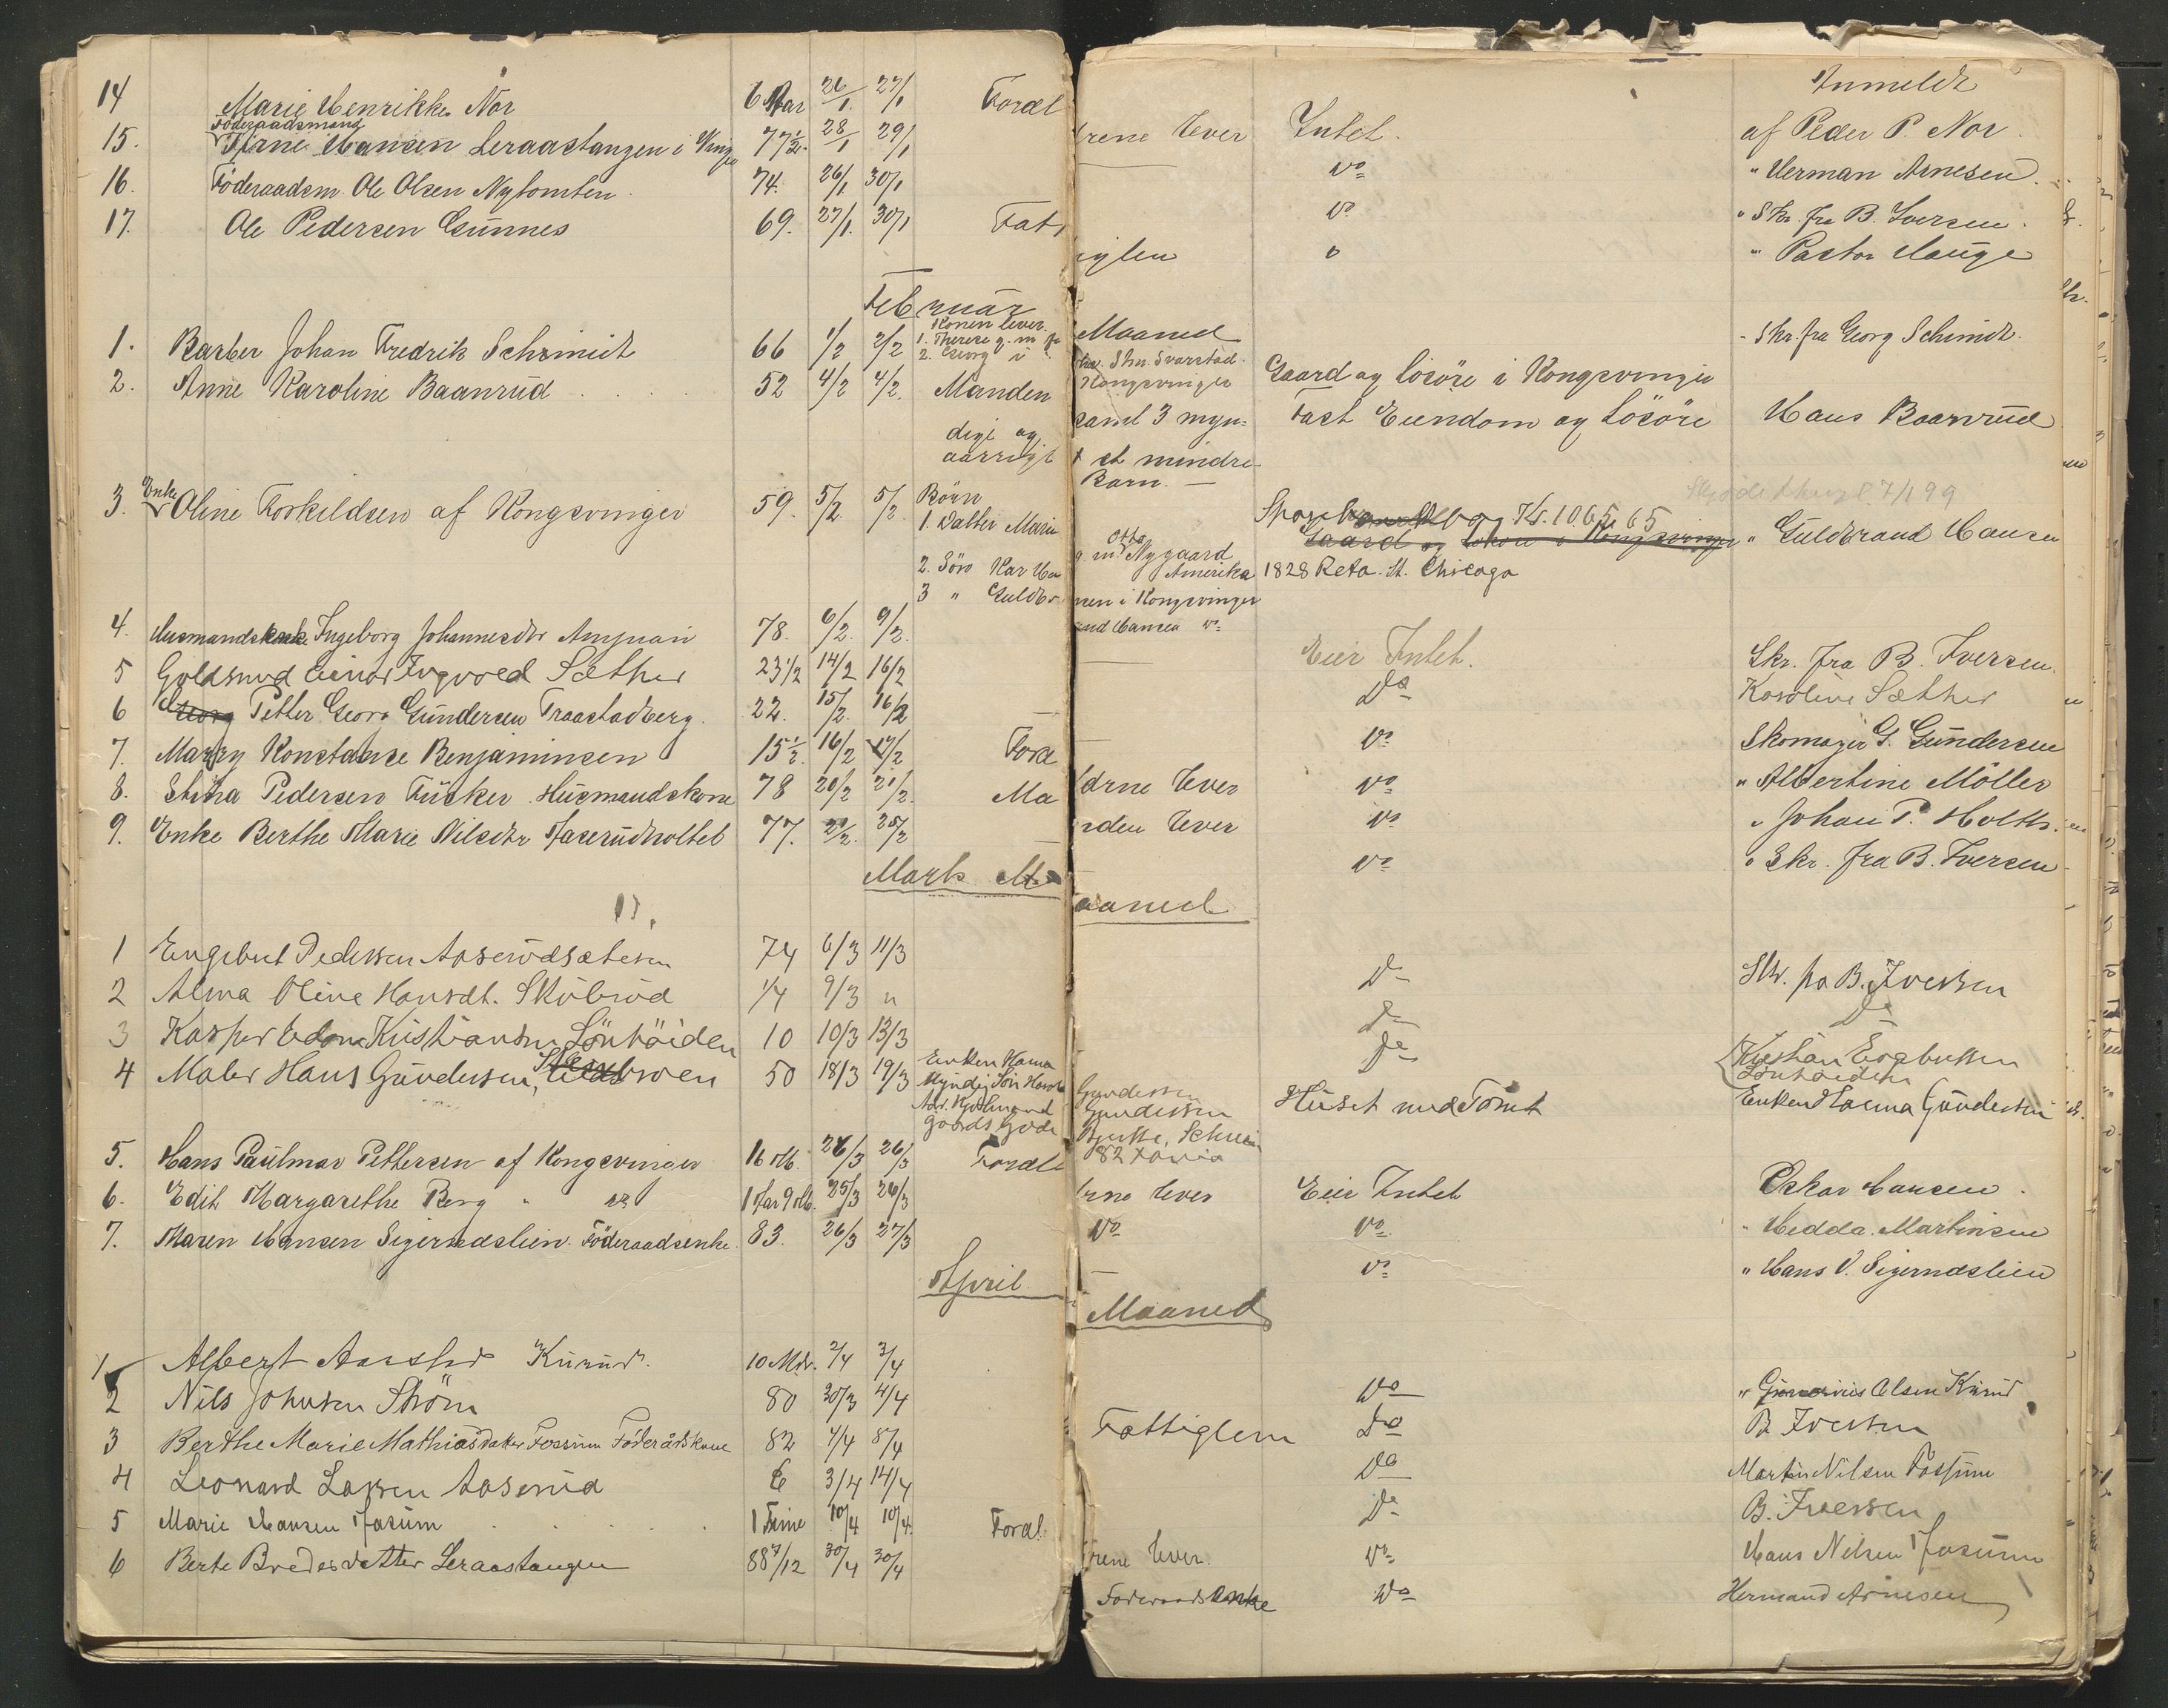 Anmeldt
14 Marie Henrikke Nor 6 Aar 26/1. 27/1 Forældrene lever Intet. af Peder P. Nor.
Föderaadsmand
15. Arne Hansen Leraastangen i Vinger 77½. 28/1 29/1 — Do " Herman Arnesen.
16. Föderaadsm. Ole Olsen Nytomten. 74. 26/1 30/1 Do " Skr. fra B. Iversen.
17. Ole Pedersen Gunnes 69. 27/1. 30/1 Fattiglem " Pastor Hauge
Februar Maaned
Konen lever.
1. Barber Johan Fredrik Schmidt 66 1/2 2/2 1. Therese g. m. Skr. fra Georg Schmidt.
2. Georg i Kongsvinger Gaard og Lösöre i Kongsvinger
2. Anne Karoline Baanrud 52 4/2 4/2. Manden samt 3 myn= Fast Eiendom og Lösöre Hans Baanrud
dige og et mindre-
aarrigt Barn. —
Enke
3. Oline Torkildsen af Kongsvinger 59. 5/2. 5/2. Börn
Kr. 1065,65
1. Datter Marie g. m. Otto Nygaard Gaard og Lösöre i Kongsvinger " Guldbrand Hansen
Amerika 1828 Reta. St. Chicago
2. Sön Kar Hansen i Kongsvinger
3 " Guldbrand Hansen Do
4. Husmandsenke Ingeborg Johannesdtr 78. 6/2. 9/2. — Eier Intet. Skr. fra B. Iversen.
5 Guldsmed Einar Ingvold Sæther 23½ 14/2 16/2 Do Karoline Sæther
6 Georg Petter Georg Gundersen Traastadberg. 22. 15/2. 16/2 — Do Skomager G. Gundersen
7. Marry Konstanse Benjaminsen 15½. 16/2 17/2 Forældrne lever Do " Albertine Möller
8. Stina Pedersen Füsker Husmandskone 78 20/2 21/2. Manden lever Do " Johan P. Holth.
9. Enke Berthe Marie Nilsdtr 77. 21/2. 25/2 — Do " Skr. fra B. Iversen
Marts Maaned
1 Engebret Pedersen Aaserudsæteren 74 6/3 11/3 Do Skr. fra B. Iversen
2 Alma Oline Hansdt. Skübrud 1/4 9/3 " Do Do
3 Kasper Edon Kristiansen Lönhöiden 10 10/3 13/3 Do Kristian Engebretsen
Lönhöiden
4 Maler Hans Gundersen, 50 18/3 19/3 Enken Hanna Gundersen Huset med Tomt Enken Hanna Gundersen
Myndig Sön Gundersen
5. Hans Paulmar Pettersen af Kongsvinger 16 M. 26/3 26/3 Forældrne lever Eier Intet Oskar Hansen.
6. Edit Margarethe Berg " Do 1 Aar 9 M. 25/3 26/3 Do Do " Hedda Martinsen
7. Maren Hansen Sigerndslien Föderaadsenke. 83. 26/3 27/3 — Do " Hans O. Sigerndslien
April Maaned
1 Albert Kurud. 10 Mdr. 2/4 3/4 Do " Olsen Kurud
2 Nils Johnsen Ström 80 30/3 4/4 Fattiglem Do B. Iversen
3 Berthe Marie Mathiasdatter Fossum Föderådskone 82 4/4 8/4 Do Martin Nilsen Fossum
4 Leonard Larsen Aaserud 6 3/4 14/4 Do B. Iversen
5 Marie Hansen Fosum 1 Time 10/4 10/4. Forældrene lever. Do Hans Nilsen Fosum
6 Berte Bredesdatter Leraastangen 88 7/12 30/4 30/4 Föderaadsenke Do Hermand Arnesen